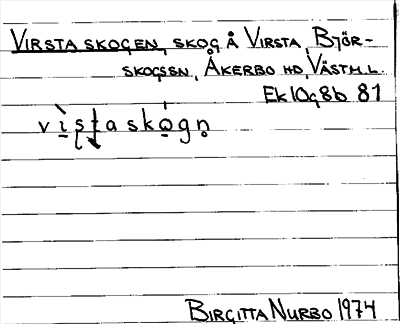 VIRSTASKOGEN, SKOG Å VIRSTA, BJÖR-
SKOGSSN, ÅKERBO HD, VÄSTM.L.
Ek 10g8b 81
vi̠ṣṭasko̠gn̥
BIRGITTA NURBO 1974